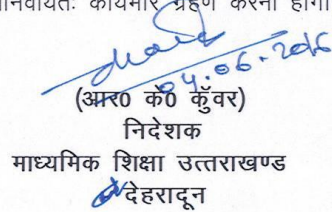 अनिवार्यतः कार्यभार ग्रहण करना होगा
04.06.2016
(आर0 के0 कुँवर)
निदेशक
माध्यमिक शिक्षा उत्तराखण्ड
देहरादून